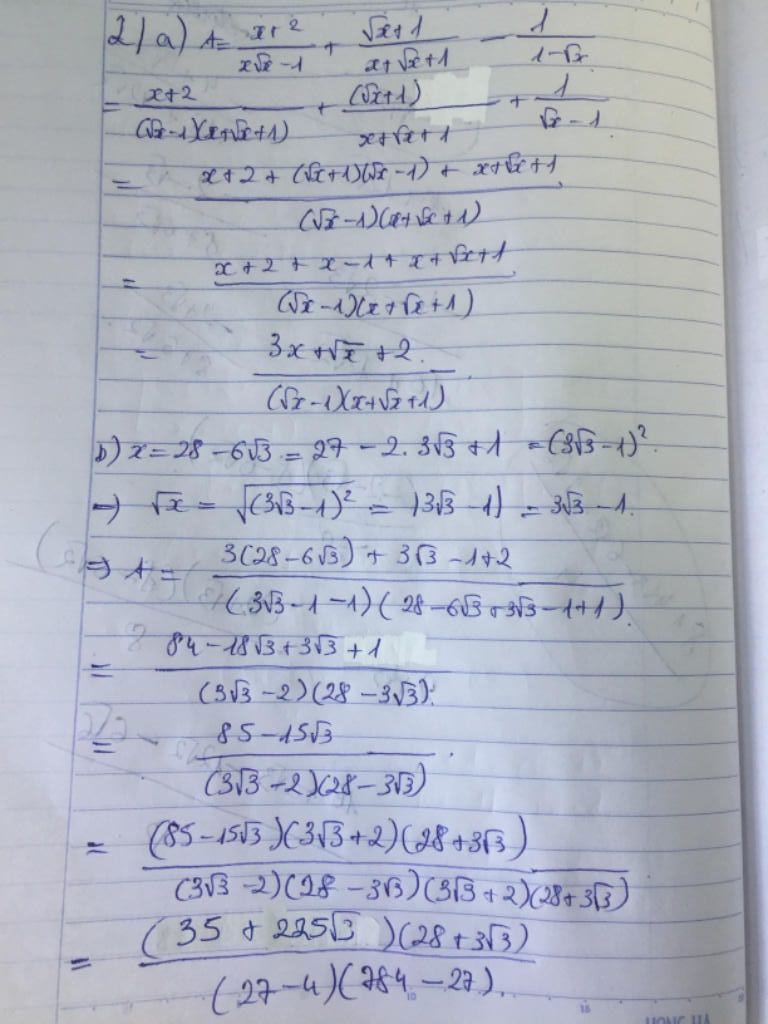 2/ a) A = (x+2)/(x√x - 1) + (√x+1)/(x+√x+1) - 1/(1-√x)
= (x+2)/((√x-1)(x+√x+1)) + (√x+1)/(x+√x+1) + 1/(√x-1)
= (x+2 + (√x+1)(√x-1) + x+√x+1)/((√x-1)(x+√x+1))
= (x+2 + x-1 + x+√x+1)/((√x-1)(x+√x+1))
= (3x+√x+2)/((√x-1)(x+√x+1))
b) x = 28 - 6√3 = 27 - 2. 3√3 + 1 = (3√3 - 1)².
=> √x = √((3√3-1)²) = |3√3 - 1| = 3√3 - 1.
=> A = (3(28-6√3) + 3√3 - 1+2)/((3√3-1-1)(28-6√3+3√3-1+1)).
= (84 - 18√3 + 3√3 + 1)/((3√3-2)(28-3√3)).
= (85 - 15√3)/((3√3-2)(28-3√3)).
= ((85-15√3)(3√3+2)(28+3√3))/((3√3-2)(28-3√3)(3√3+2)(28+3√3))
= ((35 + 225√3)(28+3√3))/((27-4)(784-27)).